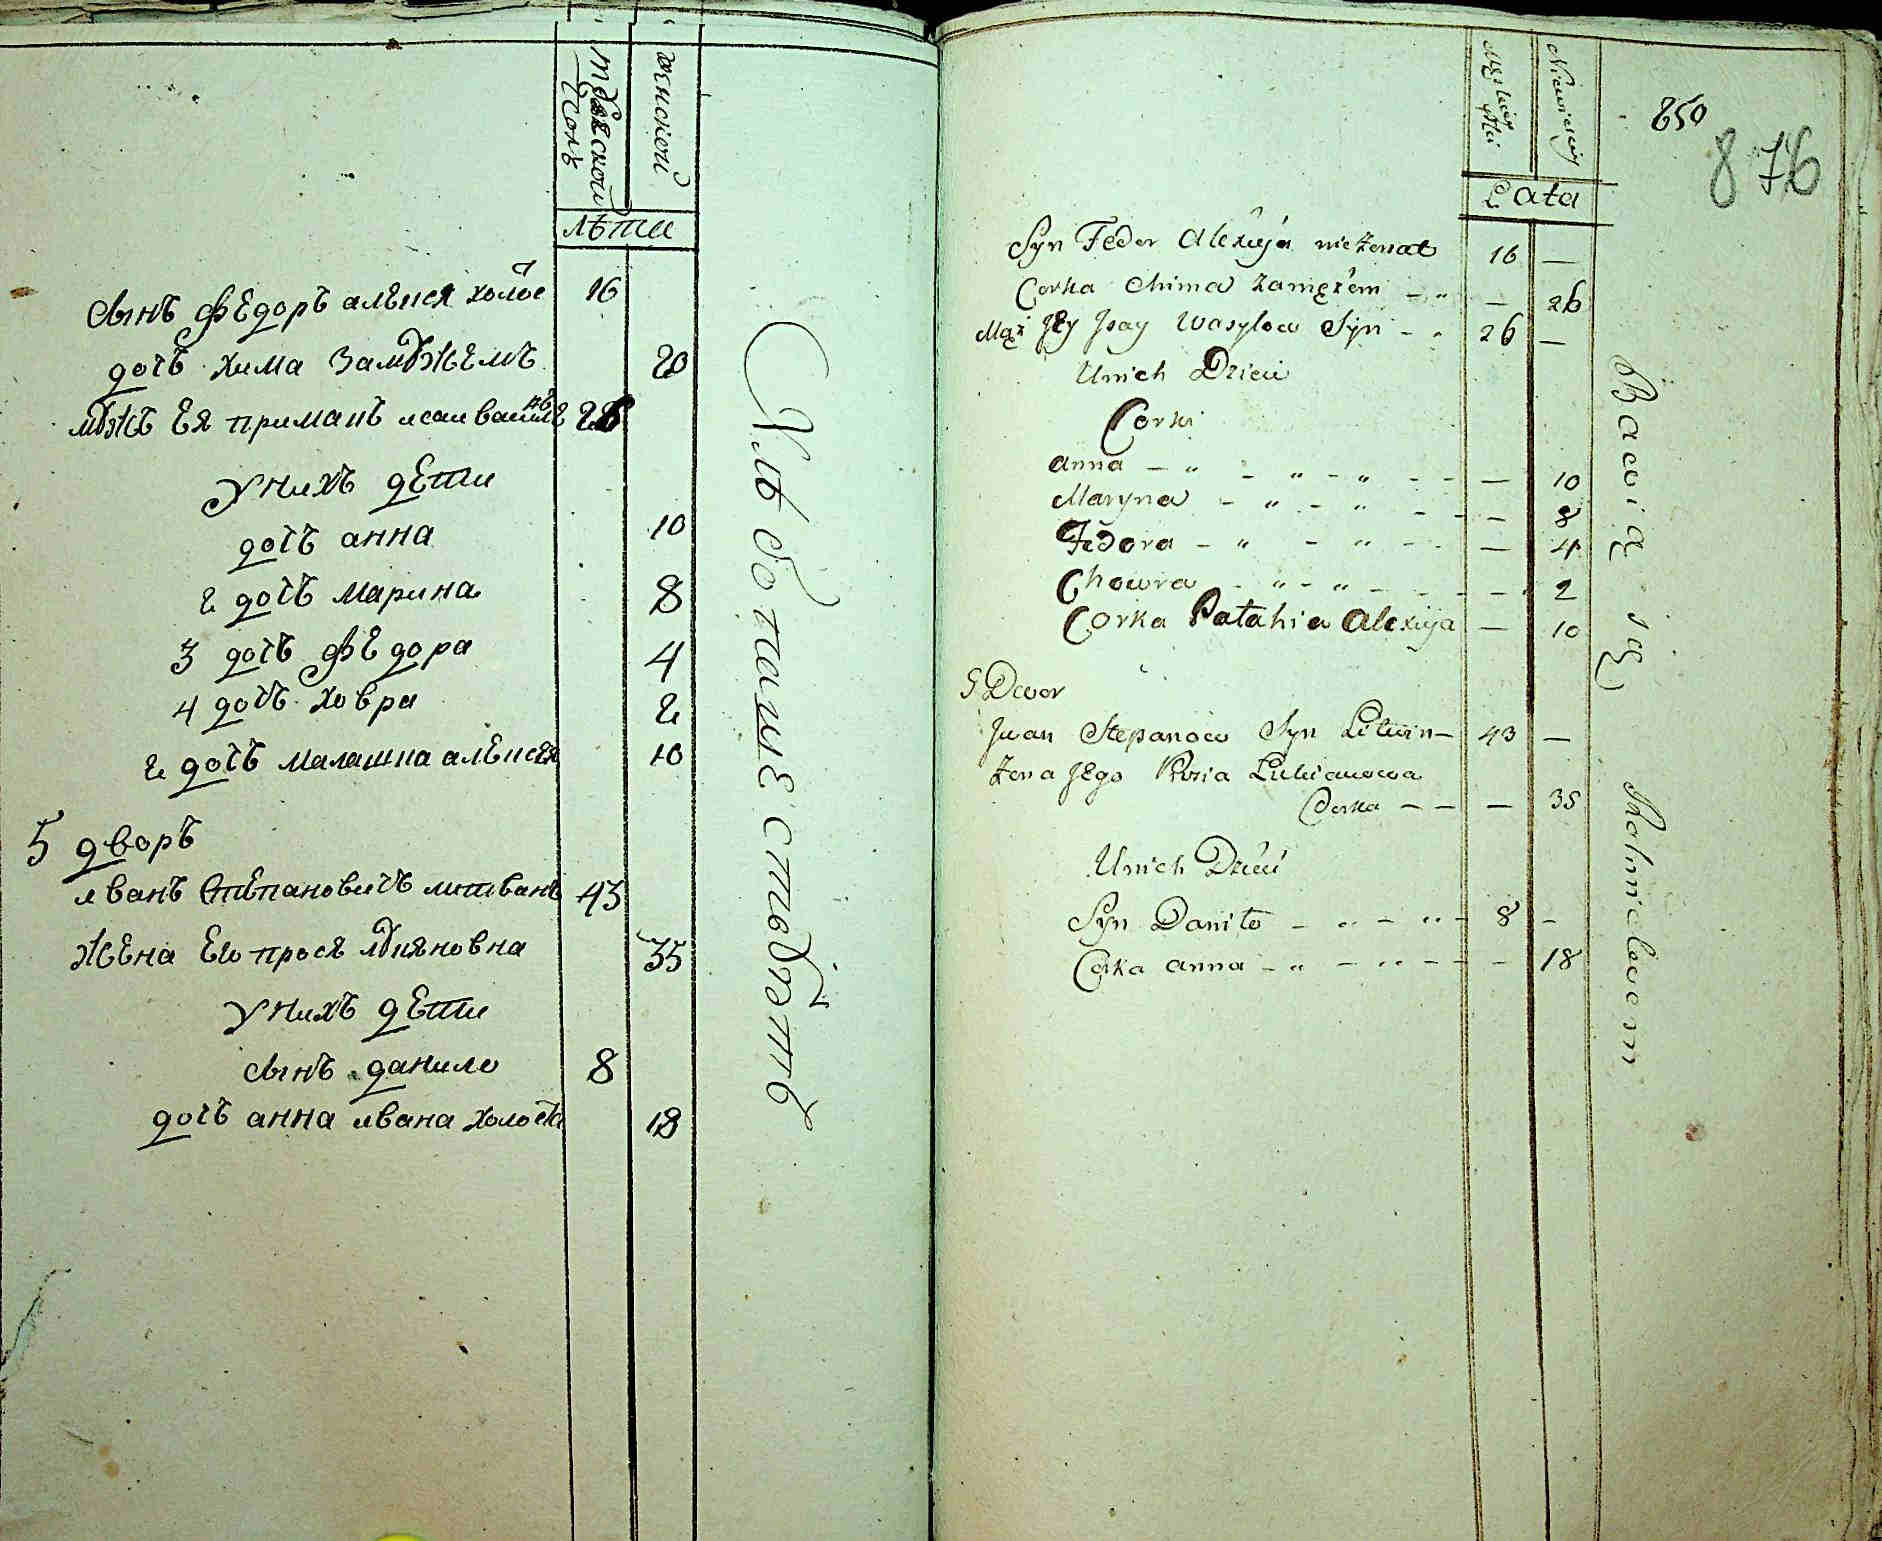 мужской женской
полъ
лѣты
сынъ федоръ алѣксея холос 16
дочъ хима замужемъ 20
мужъ ея приманъ исаи василе 26
У нихъ дети
дочъ анна 10
2 дочъ марина 8
3 дочъ федора 4
4 дочъ ховра 2
2 дочъ малашка алексея 10
5 дворъ
иванъ степановичъ литвинъ 43
жена его прося лукяновна 35
У нихъ дети
сынъ данило 8
дочъ анна ивана холоста 18
Хлѣбопашествуютъ
850
876
Męzkiey Płci Niewieściey
Lata
Syn Fedor Alexieja nieżenat 16 —
Corka Chima Zamężem — „ — 26
Mąż Jey Jsay Wasylow Syn - „ 26 —
Unich Dzieci
Corki
anna — „ — „ — „ — — — 10
Maryna — „ — „ — — — 8
Fedora — „ — „ — — — 4
Chowra — „ — „ — — — — 2
Corka Patahia Alexieja — 10
5 Dwor
Jwan Stepanow Syn Litwin — 43 —
Zena Jego Prosia Lukianowa
Corka — — — 35
Unich Dzieci
Syn Daniło — „ — „ — 8 —
Corka anna — „ — „ — — — 18
Bawią się Rolnictwem